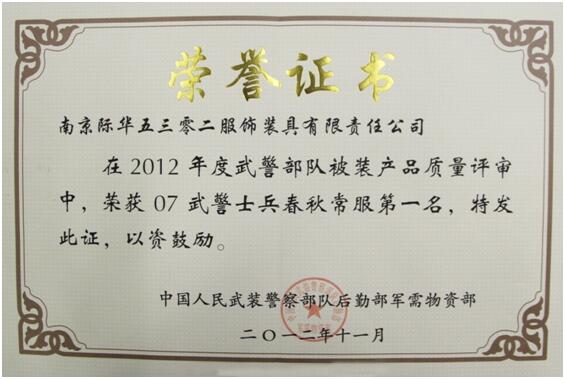 荣誉证书
南京际华五三零二服饰装具有限责任公司
在2012年度武警部队被装产品质量评审
中，荣获07武警士兵春秋常服第一名，特发
此证，以资鼓励。
中国人民武装警察部队后勤部军需物资部
二〇一二年十一月